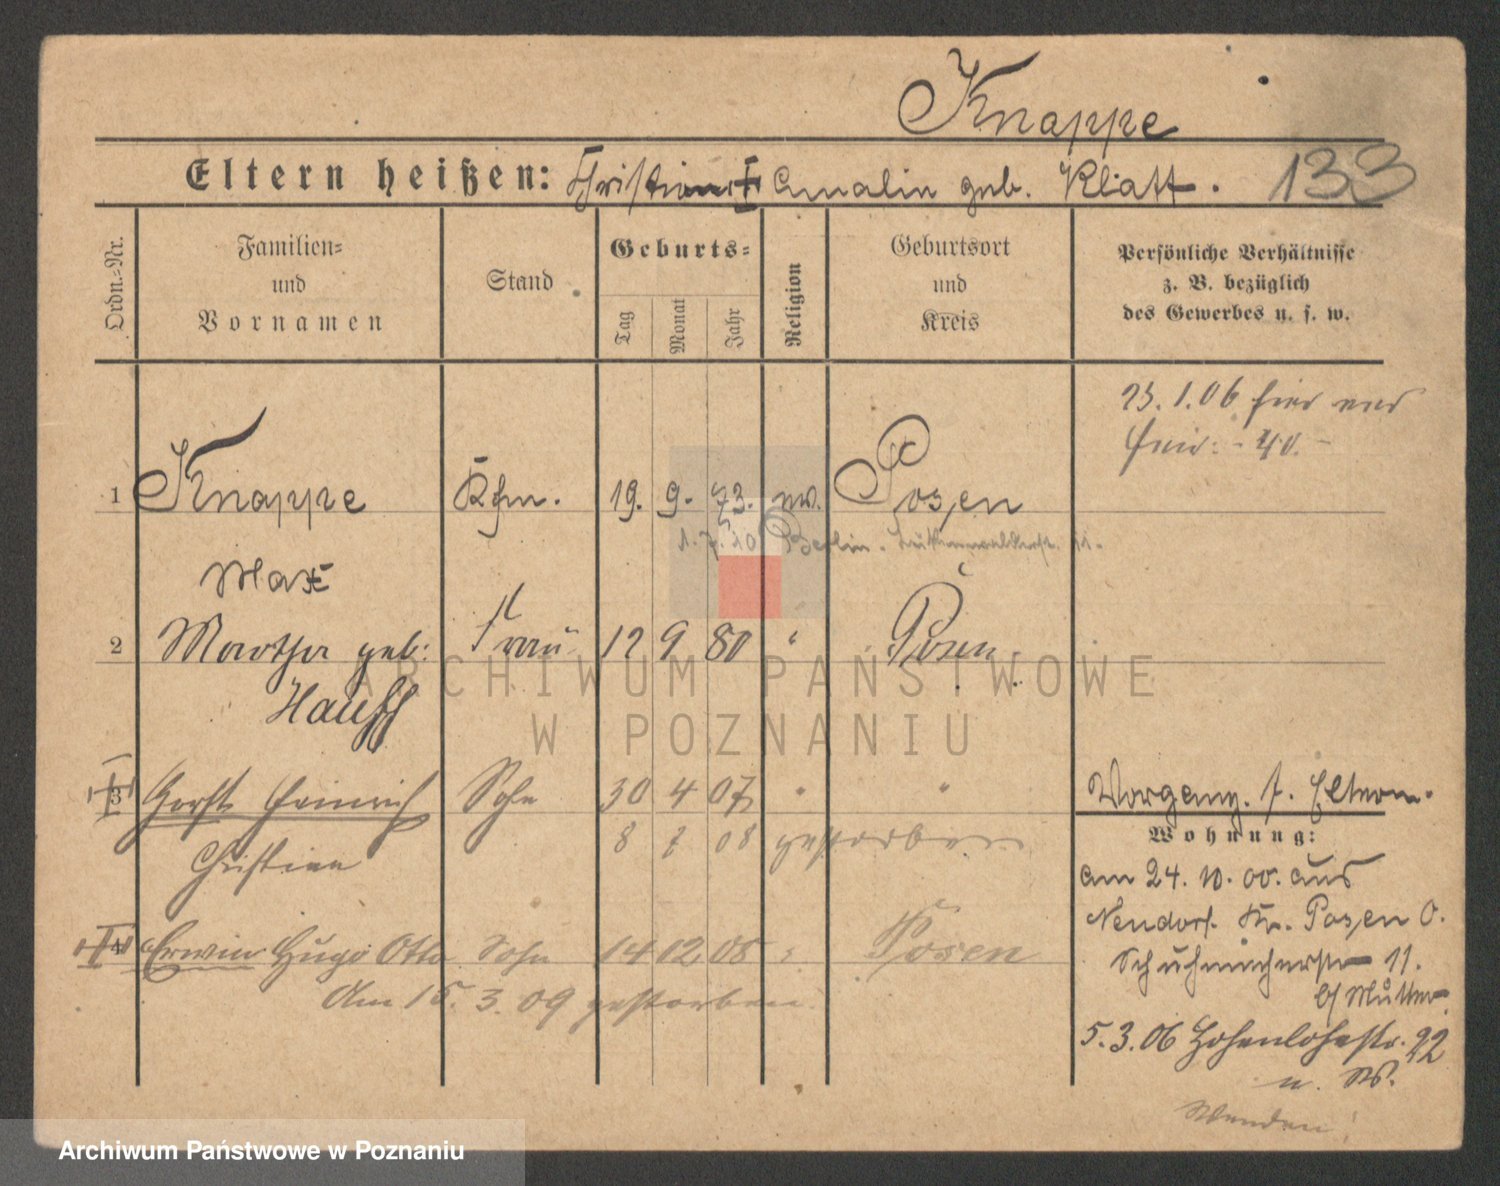 Knappe
Eltern heißen: Christian † Amalin geb. Klatt. 133
Ordn.-Nr.
Familien- und Vornamen
Stand
Geburts-
Tag
Monat
Jahr
Religion
Geburtsort und Kreis
Persönliche Verhältnisse
z. B. bezüglich
des Gewerbes u. s. w.
23.1.06 hier
40.-
1 Knappe Kfm. 19. 9. 73. ev. Posen
1.7.10 Berlin.
Max
2 Martha geb: Frau 12 9 80 " Posen
Hauff
3 Horst Heinrich Sohn 30 4 07 " "
8 7 08 gestorben
Christian
4 Erwin Hugo Otto Sohn 14 12 08 " Posen
Am 15. 3. 09 gestorben
Vorgang. s. Eltern.
Wohnung:
am 24. 10. 00. aus
Neudorf. Kr. Posen O.
Schuhmacherstr 11.
b/ Mutter.
5.3.06 Hohenlohestr. 22
u. W.
Wenden!
ARCHIWUM PAŃSTWOWE
W POZNANIU
Archiwum Państwowe w Poznaniu